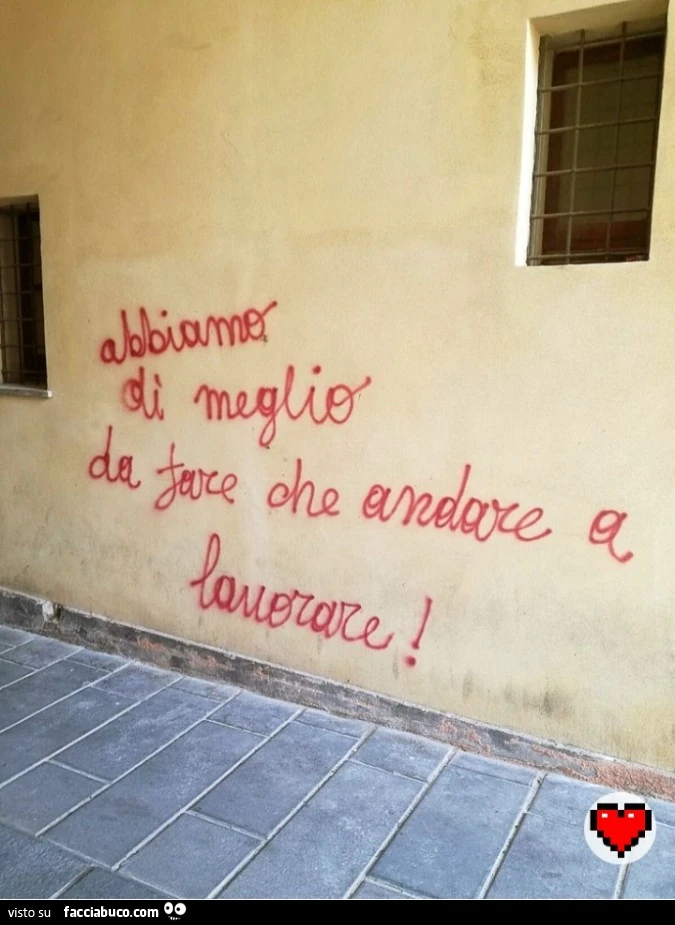 abbiamo
dì meglio
da fare che andare a
lavorare!
visto su facciabuco.com